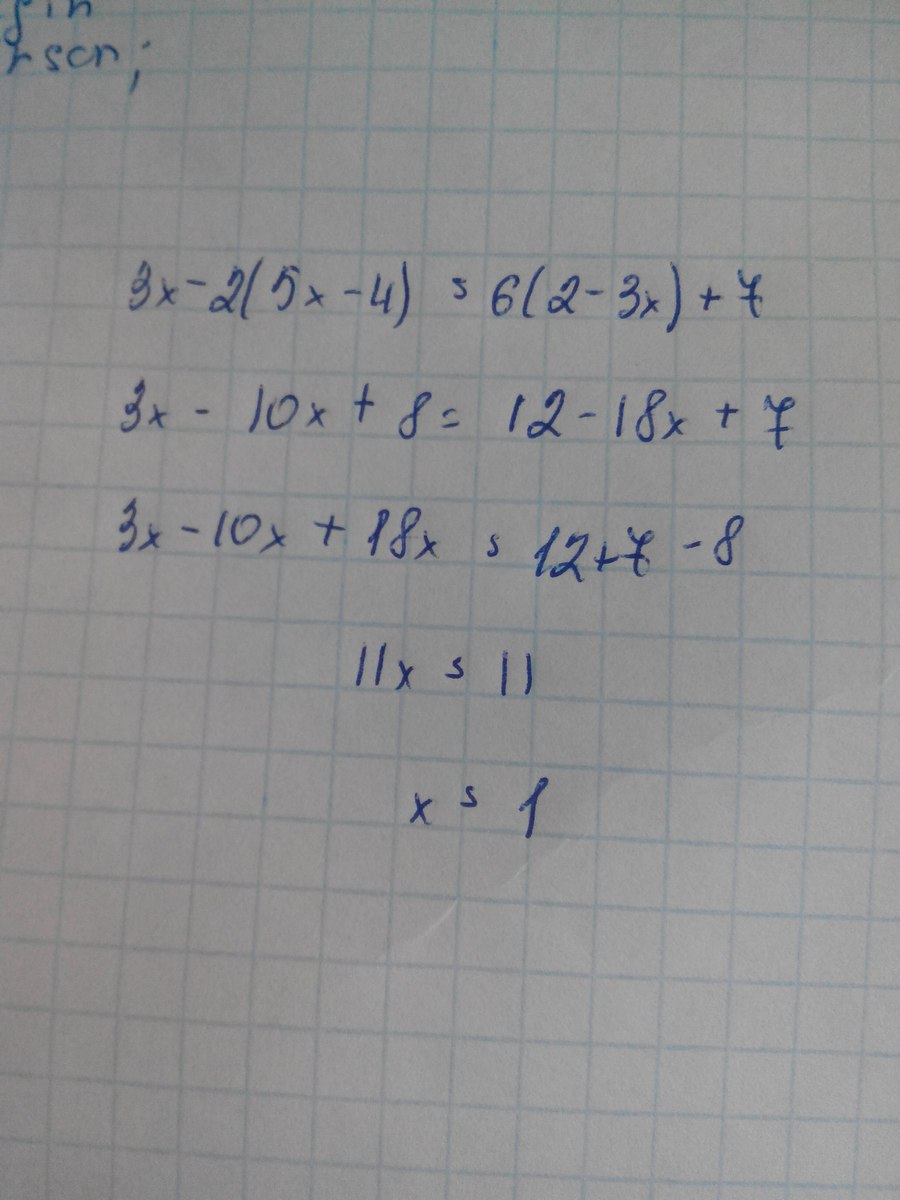 3x-2(5x-4) = 6(2-3x)+7
3x - 10x + 8 = 12-18x + 7
3x-10x + 18x = 12+7 -8
11x = 11
x = 1